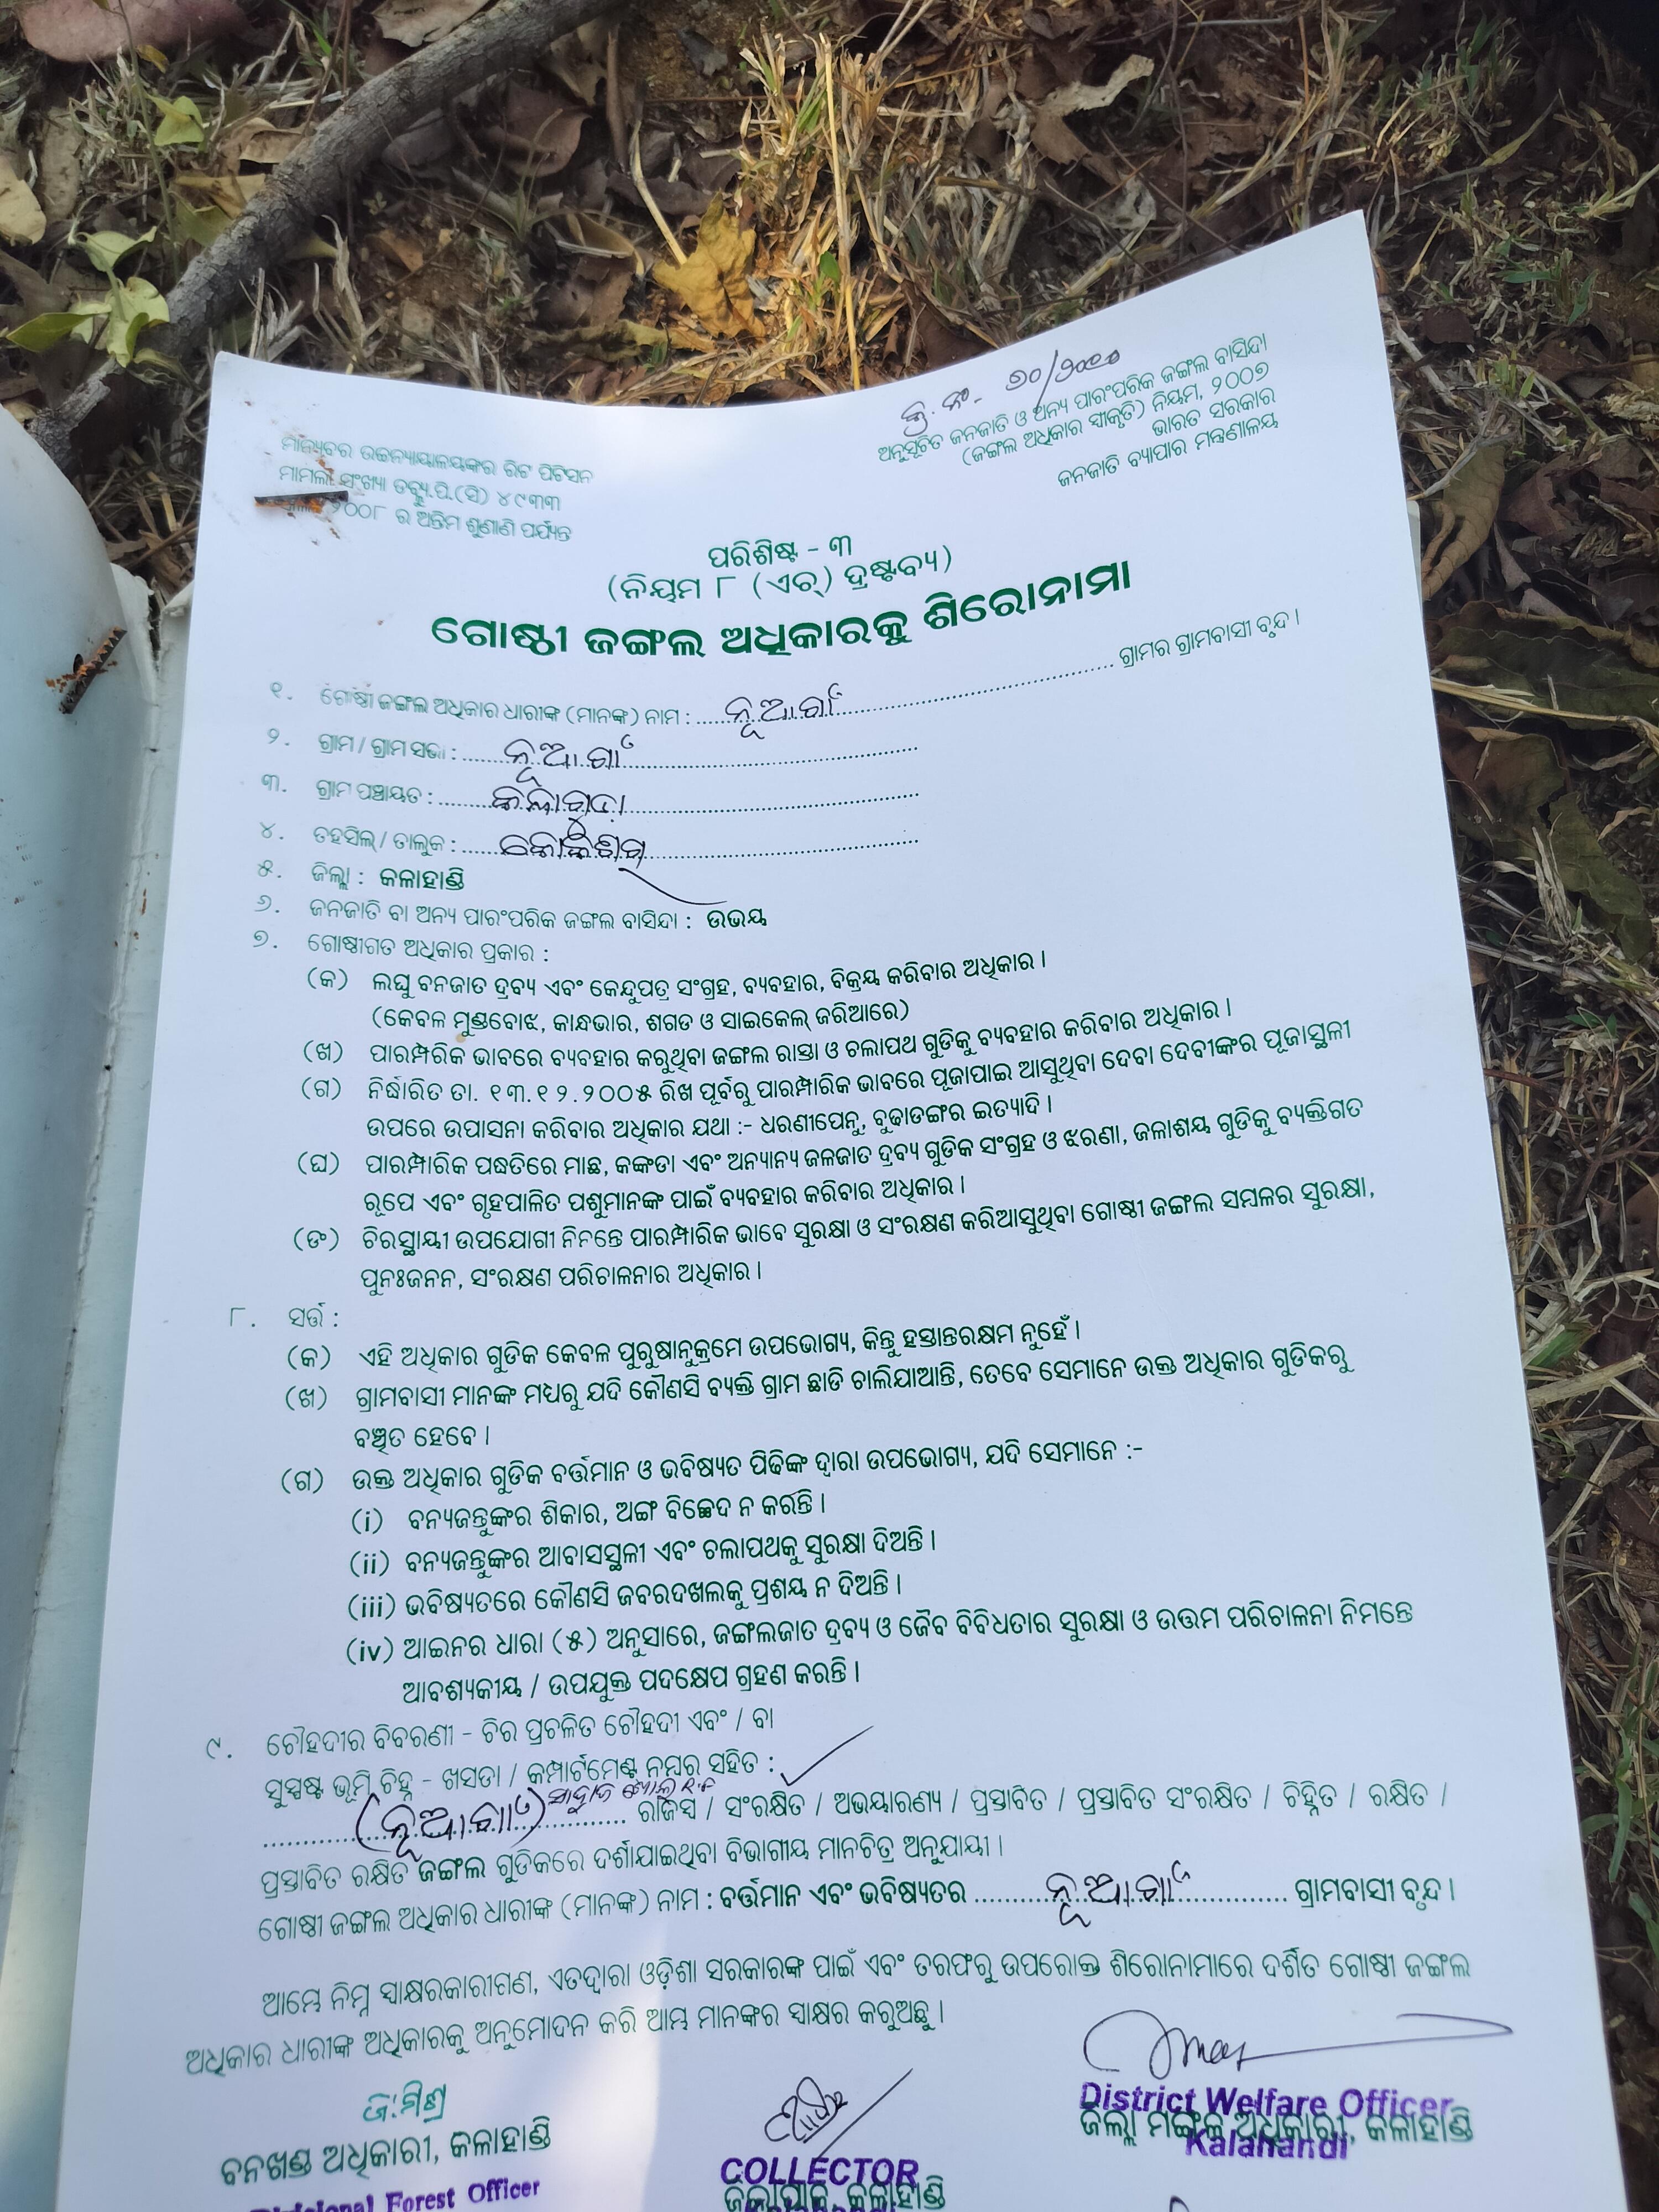 କ୍ର. ନଂ-
ଅନୁସୂଚିତ ଜନଜାତି ଓ ଅନ୍ୟ ପାରଂପରିକ ଜଙ୍ଗଲ ବାସିନ୍ଦା
(ଜଙ୍ଗଲ ଅଧିକାର ସ୍ୱୀକୃତି) ନିୟମ, ୨୦୦୭
ଭାରତ ସରକାର
ଜନଜାତି ବ୍ୟାପାର ମନ୍ତ୍ରଣାଳୟ
ମାନ୍ୟବର ଉଚ୍ଚନ୍ୟାୟାଳୟଙ୍କର ରିଟ ପିଟିସନ
ମାମଲା ସଂଖ୍ୟା ଡବ୍ଲ୍ୟୁ.ପି.(ସି) ୪୯୩୩
୨୦୦୮ ର ଅନ୍ତିମ ଶୁଣାଣି ପର୍ଯ୍ୟନ୍ତ
ପରିଶିଷ୍ଟ - ୩
(ନିୟମ ୮ (ଏଚ୍) ଦ୍ରଷ୍ଟବ୍ୟ)
ଗୋଷ୍ଠୀ ଜଙ୍ଗଲ ଅଧିକାରକୁ ଶିରୋନାମା
୧. ଗୋଷ୍ଠୀ ଜଙ୍ଗଲ ଅଧିକାର ଧାରୀଙ୍କ (ମାନଙ୍କ) ନାମ : ନୂଆଗାଁ ଗ୍ରାମର ଗ୍ରାମବାସୀ ବୃନ୍ଦ ।
୨. ଗ୍ରାମ / ଗ୍ରାମ ସଭା : ନୂଆଗାଁ
୩. ଗ୍ରାମ ପଞ୍ଚାୟତ :
୪. ତହସିଲ୍ / ତାଲୁକ :
୫. ଜିଲ୍ଲା : କଳାହାଣ୍ଡି
୬. ଜନଜାତି ବା ଅନ୍ୟ ପାରଂପରିକ ଜଙ୍ଗଲ ବାସିନ୍ଦା : ଉଭୟ
୭. ଗୋଷ୍ଠୀଗତ ଅଧିକାର ପ୍ରକାର :
(କ) ଲଘୁ ବନଜାତ ଦ୍ରବ୍ୟ ଏବଂ କେନ୍ଦୁପତ୍ର ସଂଗ୍ରହ, ବ୍ୟବହାର, ବିକ୍ରୟ କରିବାର ଅଧିକାର ।
(କେବଳ ମୁଣ୍ଡବୋଝ, କାନ୍ଧଭାର, ଶଗଡ ଓ ସାଇକେଲ୍ ଜରିଆରେ)
(ଖ) ପାରମ୍ପରିକ ଭାବରେ ବ୍ୟବହାର କରୁଥିବା ଜଙ୍ଗଲ ରାସ୍ତା ଓ ଚଲାପଥ ଗୁଡିକୁ ବ୍ୟବହାର କରିବାର ଅଧିକାର ।
(ଗ) ନିର୍ଦ୍ଧାରିତ ତା. ୧୩.୧୨.୨୦୦୫ ରିଖ ପୂର୍ବରୁ ପାରମ୍ପାରିକ ଭାବରେ ପୂଜାପାଇ ଆସୁଥିବା ଦେବା ଦେବୀଙ୍କର ପୂଜାସ୍ଥଳୀ
ଉପରେ ଉପାସନା କରିବାର ଅଧିକାର ଯଥା :- ଧରଣୀପେନୁ, ବୁଢାଡଙ୍ଗର ଇତ୍ୟାଦି ।
(ଘ) ପାରମ୍ପାରିକ ପଦ୍ଧତିରେ ମାଛ, କଙ୍କଡା ଏବଂ ଅନ୍ୟାନ୍ୟ ଜଳଜାତ ଦ୍ରବ୍ୟ ଗୁଡିକ ସଂଗ୍ରହ ଓ ଝରଣା, ଜଳାଶୟ ଗୁଡିକୁ ବ୍ୟକ୍ତିଗତ
ରୂପେ ଏବଂ ଗୃହପାଳିତ ପଶୁମାନଙ୍କ ପାଇଁ ବ୍ୟବହାର କରିବାର ଅଧିକାର ।
(ଙ) ଚିରସ୍ଥାୟୀ ଉପଯୋଗୀ ନିମନ୍ତେ ପାରମ୍ପାରିକ ଭାବେ ସୁରକ୍ଷା ଓ ସଂରକ୍ଷଣ କରିଆସୁଥିବା ଗୋଷ୍ଠୀ ଜଙ୍ଗଲ ସମ୍ବଳର ସୁରକ୍ଷା,
ପୁନଃଜନନ, ସଂରକ୍ଷଣ ପରିଚାଳନାର ଅଧିକାର ।
୮. ସର୍ତ୍ତ :
(କ) ଏହି ଅଧିକାର ଗୁଡିକ କେବଳ ପୁରୁଷାନୁକ୍ରମେ ଉପଭୋଗ୍ୟ, କିନ୍ତୁ ହସ୍ତାନ୍ତରକ୍ଷମ ନୁହେଁ ।
(ଖ) ଗ୍ରାମବାସୀ ମାନଙ୍କ ମଧ୍ୟରୁ ଯଦି କୌଣସି ବ୍ୟକ୍ତି ଗ୍ରାମ ଛାଡି ଚାଲିଯାଆନ୍ତି, ତେବେ ସେମାନେ ଉକ୍ତ ଅଧିକାର ଗୁଡିକରୁ
ବଞ୍ଚିତ ହେବେ ।
(ଗ) ଉକ୍ତ ଅଧିକାର ଗୁଡିକ ବର୍ତ୍ତମାନ ଓ ଭବିଷ୍ୟତ ପିଢିଙ୍କ ଦ୍ୱାରା ଉପଭୋଗ୍ୟ, ଯଦି ସେମାନେ :-
(i) ବନ୍ୟଜନ୍ତୁଙ୍କର ଶିକାର, ଅଙ୍ଗ ବିଚ୍ଛେଦ ନ କରନ୍ତି ।
(ii) ବନ୍ୟଜନ୍ତୁଙ୍କର ଆବାସସ୍ଥଳୀ ଏବଂ ଚଲାପଥକୁ ସୁରକ୍ଷା ଦିଅନ୍ତି ।
(iii) ଭବିଷ୍ୟତରେ କୌଣସି ଜବରଦଖଲକୁ ପ୍ରଶୟ ନ ଦିଅନ୍ତି ।
(iv) ଆଇନର ଧାରା (୫) ଅନୁସାରେ, ଜଙ୍ଗଲଜାତ ଦ୍ରବ୍ୟ ଓ ଜୈବ ବିବିଧତାର ସୁରକ୍ଷା ଓ ଉତ୍ତମ ପରିଚାଳନା ନିମନ୍ତେ
ଆବଶ୍ୟକୀୟ / ଉପଯୁକ୍ତ ପଦକ୍ଷେପ ଗ୍ରହଣ କରନ୍ତି ।
୯. ଚୌହଦୀର ବିବରଣୀ - ଚିର ପ୍ରଚଳିତ ଚୌହଦୀ ଏବଂ / ବା
ସୁସ୍ପଷ୍ଟ ଭୂମି ଚିହ୍ନ - ଖସଡା / କମ୍ପାର୍ଟମେଣ୍ଟ ନମ୍ବର ସହିତ :
(ନୂଆଗାଁ) R.F ରାଜସ୍ୱ / ସଂରକ୍ଷିତ / ଅଭୟାରଣ୍ୟ / ପ୍ରସ୍ତାବିତ / ପ୍ରସ୍ତାବିତ ସଂରକ୍ଷିତ / ଚିହ୍ନିତ / ରକ୍ଷିତ /
ପ୍ରସ୍ତାବିତ ରକ୍ଷିତ ଜଙ୍ଗଲ ଗୁଡିକରେ ଦର୍ଶାଯାଇଥିବା ବିଭାଗୀୟ ମାନଚିତ୍ର ଅନୁଯାୟୀ ।
ଗୋଷ୍ଠୀ ଜଙ୍ଗଲ ଅଧିକାର ଧାରୀଙ୍କ (ମାନଙ୍କ) ନାମ : ବର୍ତ୍ତମାନ ଏବଂ ଭବିଷ୍ୟତର ନୂଆଗାଁ ଗ୍ରାମବାସୀ ବୃନ୍ଦ ।
ଆମ୍ଭେ ନିମ୍ନ ସ୍ୱାକ୍ଷରକାରୀଗଣ, ଏତଦ୍ୱାରା ଓଡ଼ିଶା ସରକାରଙ୍କ ପାଇଁ ଏବଂ ତରଫରୁ ଉପରୋକ୍ତ ଶିରୋନାମାରେ ଦର୍ଶିତ ଗୋଷ୍ଠୀ ଜଙ୍ଗଲ
ଅଧିକାର ଧାରୀଙ୍କ ଅଧିକାରକୁ ଅନୁମୋଦନ କରି ଆମ୍ଭ ମାନଙ୍କର ସ୍ୱାକ୍ଷର କରୁଅଛୁ ।
ବନଖଣ୍ଡ ଅଧିକାରୀ, କଳାହାଣ୍ଡି
Divisional Forest Officer
COLLECTOR
ଜିଲ୍ଲାପାଳ, କଳାହାଣ୍ଡି
District Welfare Officer
ଜିଲ୍ଲା ମଙ୍ଗଳ ଅଧିକାରୀ, କଳାହାଣ୍ଡି
Kalahandi